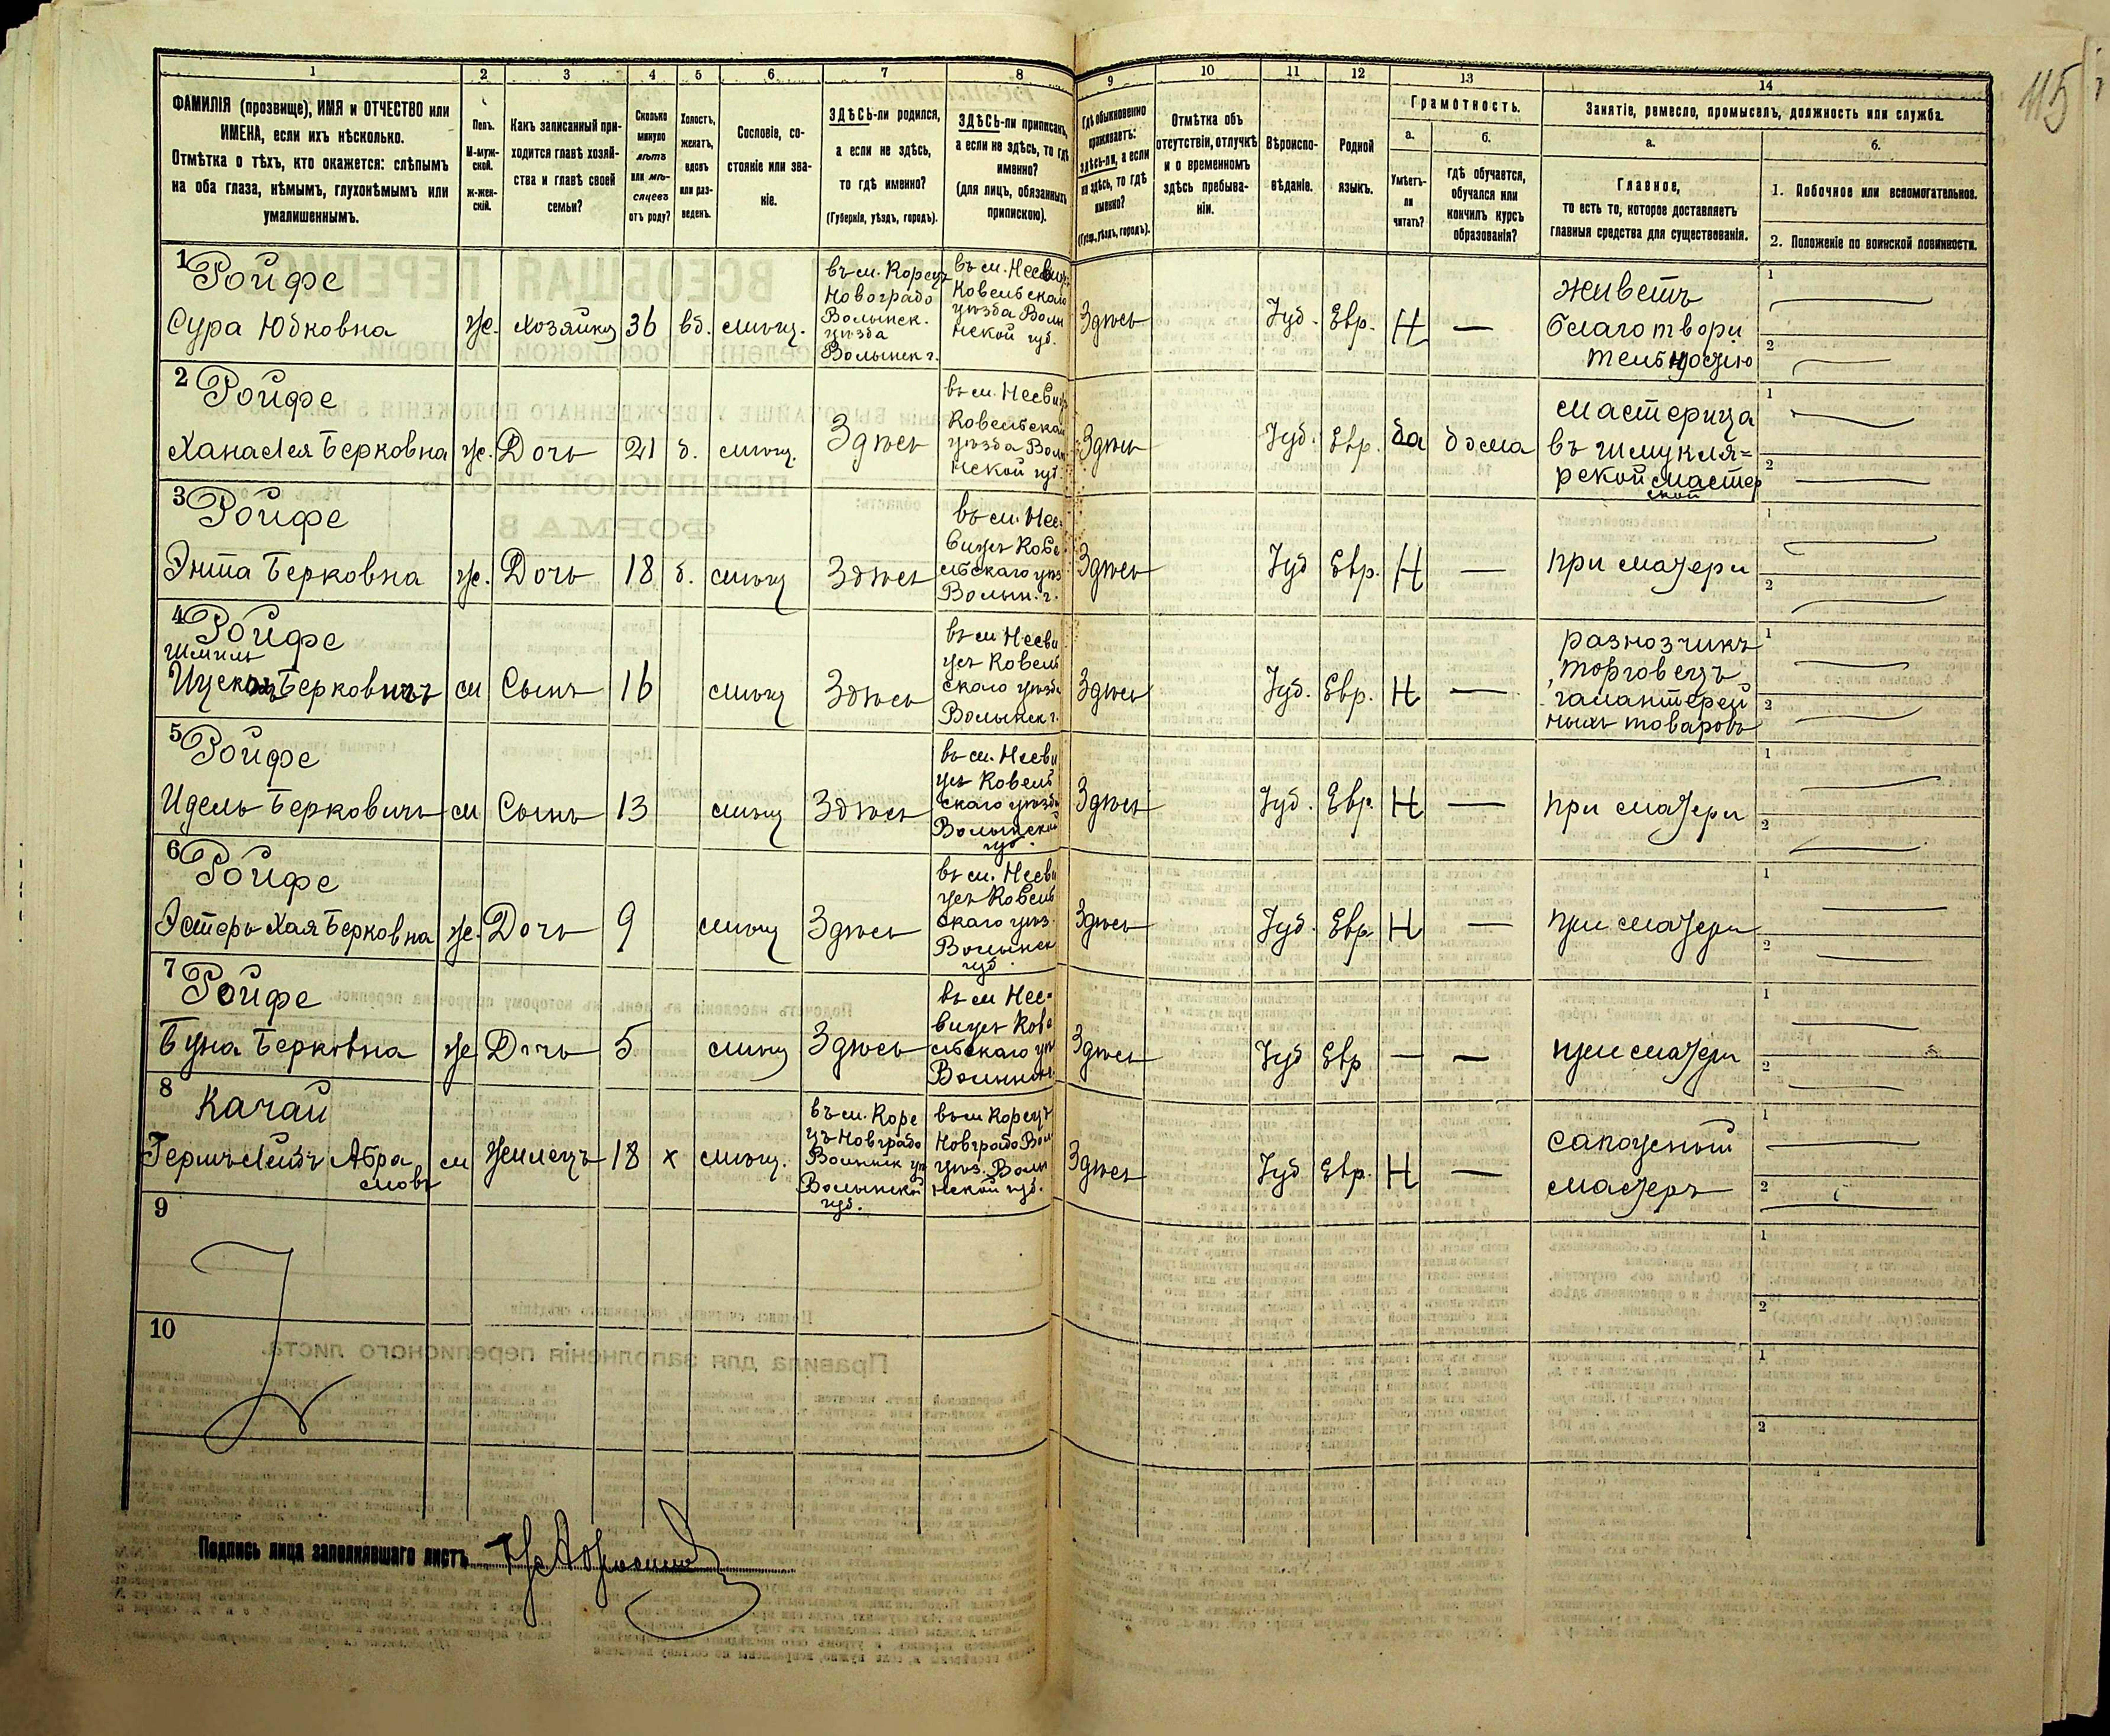 115
1 2 3 4 5 6 7 8 9 10 11 12 13 14
ФАМИЛІЯ (прозвище), ИМЯ и ОТЧЕСТВО или
ИМЕНА, если ихъ нѣсколько.
Отмѣтка о тѣхъ, кто окажется: слѣпымъ
на оба глаза, нѣмымъ, глухонѣмымъ или
умалишеннымъ.
Полъ.
М-муж-
ской.
ж-жен-
скій.
Какъ записанный при-
ходится главѣ хозяй-
ства и главѣ своей
семьи?
Сколько
минуло
лѣтъ
или мѣ-
сяцевъ
отъ роду?
Холостъ,
женатъ,
вдовъ
или раз-
веденъ.
Сословіе, со-
стояніе или зва-
ніе.
ЗДѢСЬ-ли родился,
а если не здѣсь,
то гдѣ именно?
(Губернія, уѣздъ, городъ).
ЗДѢСЬ-ли приписанъ,
а если не здѣсь, то гдѣ
именно?
(для лицъ, обязанныхъ
припискою).
Гдѣ обыкновенно
проживаетъ:
здѣсь-ли, а если
не здѣсь, то гдѣ
именно?
(Губер., уѣздъ, городъ).
Отмѣтка объ
отсутствіи, отлучкѣ
и о временномъ
здѣсь пребыва-
ніи.
Вѣроиспо-
вѣданіе.
Родной
языкъ.
Грамотность.
а.
Умѣетъ-
ли
читать?
б.
гдѣ обучается,
обучался или
кончилъ курсъ
образованія?
Занятіе, ремесло, промыселъ, должность или служба.
а.
Главное,
то есть то, которое доставляетъ
главныя средства для существованія.
б.
1. Побочное или вспомогательное.
2. Положеніе по воинской повинности.
1 Ройфе
Сура Юбковна
же.
хозяйка
36
вд.
мѣщ.
въ м. Корецъ
Новоградо
Волынск.
уѣзда
Волынск г.
въ м. Несвиж
Ковельскаго
уѣзда Волы
нской губ.
Здѣсь
Іуд.
Евр.
Н
—
живетъ
благотвори
тельностію
1
2
2 Ройфе
Ханалея Берковна
же.
Дочь
21
д.
мѣщ.
Здѣсь
въ м. Несвиж
Ковельскаго
уѣзда Волы
нской губ.
Здѣсь
Іуд.
Евр.
да
дома
мастерица
въ шмукля=
рской мастер
ской
1
2
3 Ройфе
Энта Берковна
же.
Дочь
18
д.
мѣщ
Здѣсь
въ м. Нес-
вижѣ Кове
льскаго уѣз
Волын. г.
Здѣсь
Іуд
Евр.
Н
—
при матери
1
2
4 Ройфе
Шмиль
Берковичъ
м
Сынъ
16
мѣщ
Здѣсь
въ м Несви
жѣ Ковель
скаго уѣзда
Волынск г.
Здѣсь
Іуд.
Евр.
Н
—
разнозчикъ
торговецъ
галантерей
ныхъ товаровъ
1
2
5 Ройфе
Идель Берковичъ
м
Сынъ
13
мѣщ
Здѣсь
въ м. Несви
жѣ Ковель
скаго уѣзда
Волынской
губ.
Здѣсь
Іуд.
Евр
Н
—
при матери
1
2
6 Ройфе
Эстеръ Хая Берковна
же.
Дочь
9
мѣщ
Здѣсь
въ м. Несви
жѣ Ковель
скаго уѣз.
Волынск
губ.
Здѣсь
Іуд.
Евр
Н
—
при матери
1
2
7 Ройфе
Буна Берковна
же
Дочь
5
мѣщ
Здѣсь
въ м Нес-
вижѣ Кове
льскаго уѣ
Здѣсь
Іуд
Евр
—
—
при матери
1
2
8 Качай
Гершълейбъ Абра
мовъ
м
Жилецъ
18
х
мѣщ.
въ м. Коре
цъ Новградо
Волынск уѣ
Волынской
губ.
въ м Корецъ
Новградо Вол
уѣз. Волы
нской губ.
Здѣсь
Іуд
Евр.
Н
—
сапожный
мастеръ
1
2
9
1
2
10
1
2
Подпись лица заполнившаго листъ